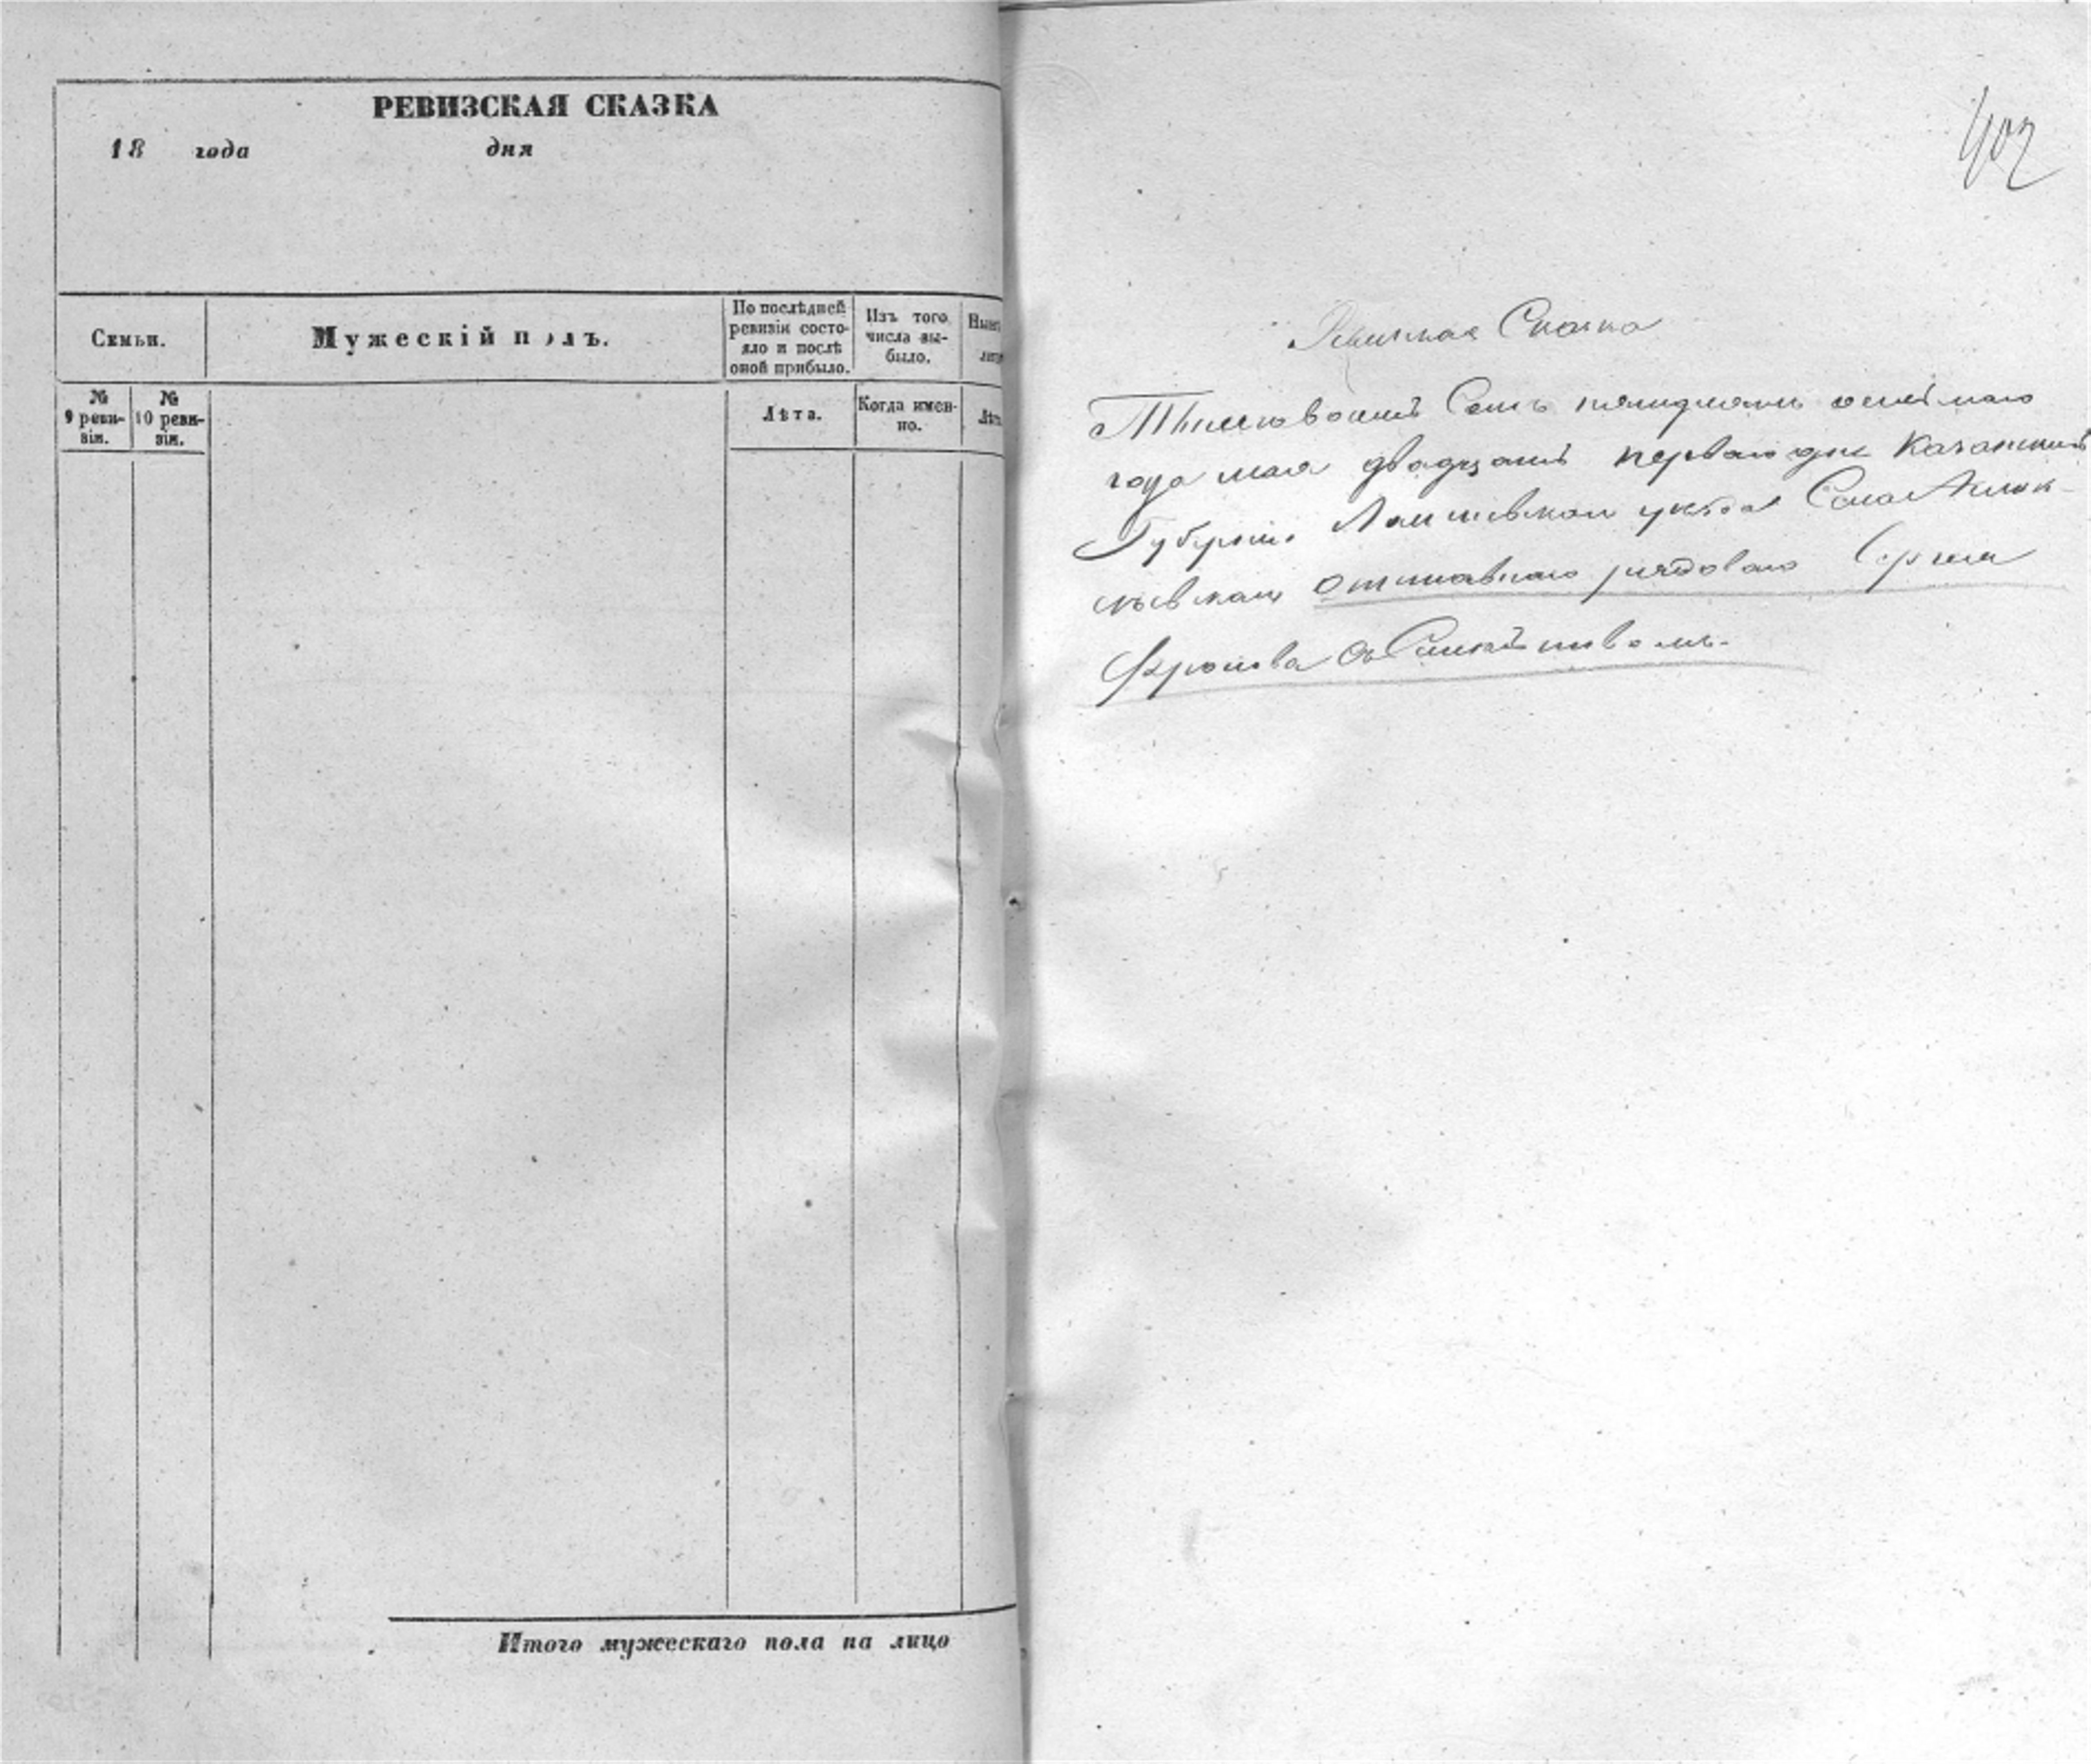 РЕВИЗСКАЯ СКАЗКА
18 года дня
Семьи.
Мужескій полъ.
По послѣдней ревизіи состо-
яло и послѣ
оной прибыло.
Изъ того
числа вы-
было.
№
9 реви-
зіи.
№
10 реви-
зіи.
Лѣта.
Когда имен-
но.
Итого мужескаго пола на лицо
402
Ревизская Сказка
Тысяча восемьсотъ пятьдесятъ осьмаго
года мая двадцать перваго дня Казанской
Губерніи Лаишевскаго уѣзда Села
отставнаго рядоваго Сергея
съ Семействомъ.